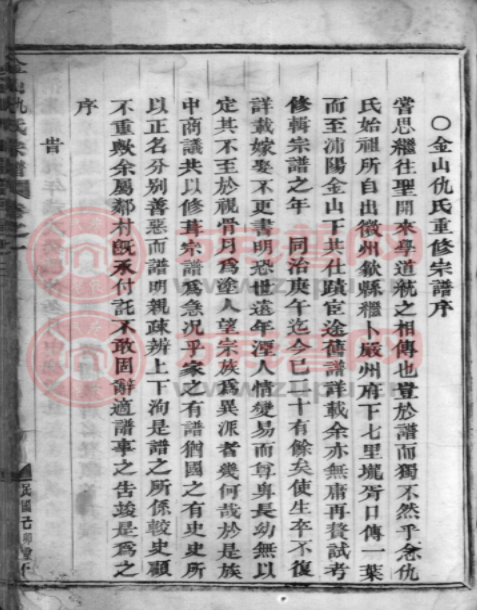 〇金山仇氏重修宗譜序
嘗思繼往聖開來學道統之相傳也豈於譜而獨不然乎念仇
氏始祖所自出徽州歙縣繼卜嚴州府下七里壠胥口傳一葉
而至浦陽金山下共仕蹟宦途舊譜詳載余亦無庸再贅試考
修輯宗譜之年 同治庚午迄今已二十有餘矣使生卒不復
詳載嫁娶不更書明恐世遠年湮人情變易而尊卑長幼無以
定其不至於視骨月為塗人望宗族為異派者幾何哉於是族
中商議共以修葺宗譜為急况乎家之有譜猶國之有史史所
以正名分別善惡而譜明親疎辨上下洵是譜之所係較史顧
不重歟余屬鄰村旣承付託不敢固辭適譜事之告竣是為之
序
旹
金山仇氏宗譜 卷之一
民國己卯重
万家普网
www.zupu.cn